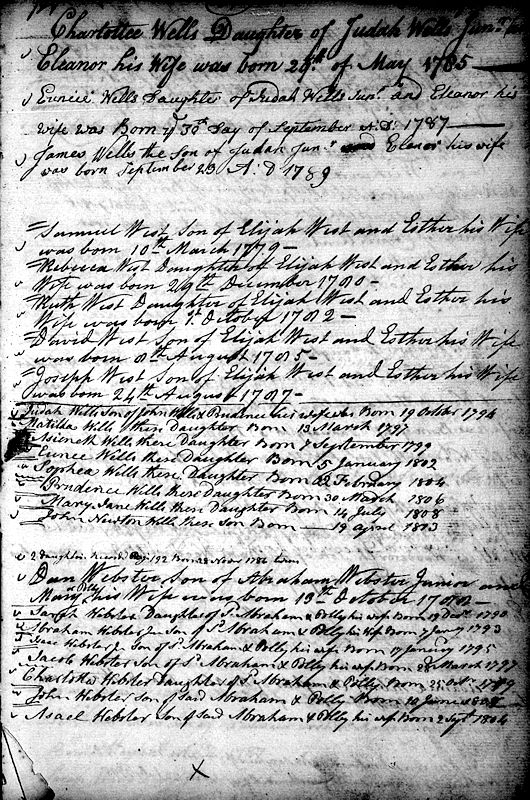 Charlottee Wells Daughter of Judah Wells Junr. and
Eleanor his Wife was born 28th. of May 1785
Eunice Wells Daughter of Judah Wells Junr. and Eleanor his
wife was Born ye 30th Day of September A.D. 1787
James Wells the Son of Judah Junr. and Eleanor his wife
was born September 23 A.D 1789
Samuel West Son of Elijah West and Esther his Wife
was born 10th March 1779
Rebecca West Daughter of Elijah West and Esther his
Wife was born 29th December 1780
Ruth West Daughter of Elijah West and Esther his
Wife was born 1st October 1782
David West Son of Elijah West and Esther his Wife
was born 8th August 1785
Joseph West Son of Elijah West and Esther his Wife
was born 24th August 1787
Judah Wells Son of John Wells & Prudence his wife was Born 19 October 1794
Matilda Wells there Daughter Born 13 March 1797
Asieneth Wells there Daughter Born 7 September 1799
Eunee Wells there Daughter Born 5 January 1802
Sophea Wells there Daughter Born 22 February 1804
Prudence Wells there Daughter Born 30 March 1806
Mary Jane Wells there Daughter Born 14 July 1808
John Newton Wells there Son Born 19 April 1813
2 daughter Born 28 1786
Dan Webster Son of Abraham Webster Junior and
Mary his Wife was born 13th October 1788
Sarah Webster Daughter of Sd. Abraham & Polly his wife Born 1790
Abraham Webster Jr Son of Sd. Abraham & Polly his wife Born 7 Janry 1793
Isaac Webster Son of Sd. Abraham & Polly his wife Born 17 January 1795
Jacob Webster Son of Sd Abraham & Polly his wife Born 28 March 1797
Charlotte Webster Daughter of Sd. Abraham & Polly Born 25 Oct. 1799
John Webster Son of Said Abraham & Polly Born June
Asael Webster Son of Said Abraham & Polly his wife Born 2 Sept. 1804
X